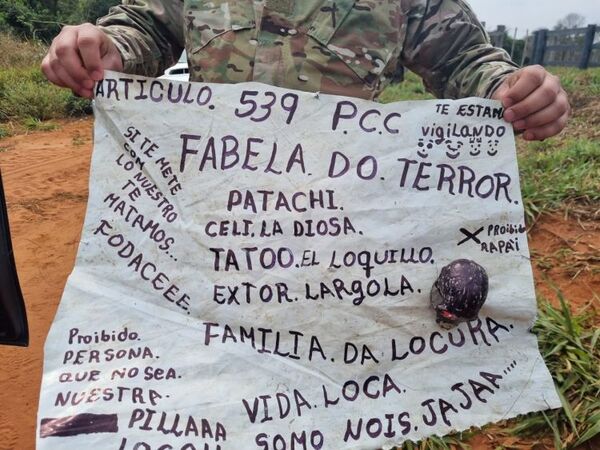 ARTICULO. 539 P.C.C
TE ESTAM
vigilando
FABELA. DO. TERROR.
SI TE METE
CON
LO NUESTRO
TE
MATAMOS...
FODACEEE.
PATACHI.
CELI. LA DIOSA.
TATOO. EL LOQUILLO.
EXTOR. LARGOLA.
X PROIBIDO
RAPAI
FAMILIA. DA LOCURA.
Proibido.
PERSONA.
QUE NO SEA.
NUESTRA.
PILLAAA
VIDA. LOCA.
SOMO NOIS. JAJAA....